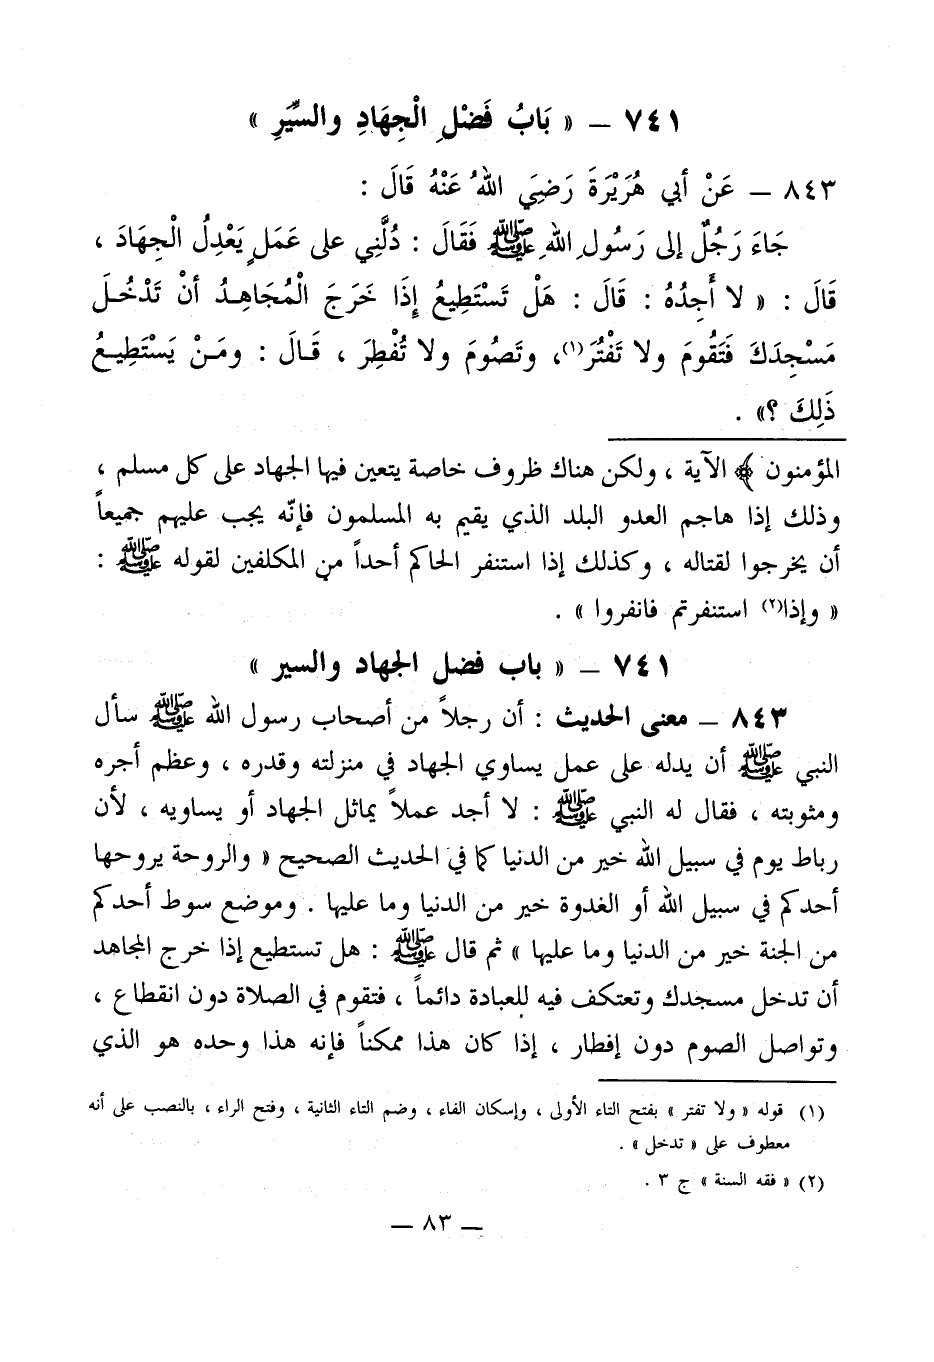 ٧٤١ – « بَابُ فَضْلِ الْجِهَادِ والسِّيَرِ »
٨٤٣ – عَنْ أبي هُرَيْرَةَ رَضِيَ اللهُ عَنْهُ قَالَ :
جَاءَ رَجُلٌ إلى رَسُولِ اللهِ ﷺ فَقَالَ : دُلَّنِي على عَمَلٍ يَعْدِلُ الْجِهَادَ ،
قَالَ : « لا أَجِدُهُ : قَالَ : هَلْ تَسْتَطِيعُ إِذَا خَرَجَ الْمُجَاهِدُ أنْ تَدْخُلَ
مَسْجِدَكَ فَتَقُومَ ولا تَفْتُرَ(١)، وتَصُومَ ولا تُفْطِرَ ، قَالَ : ومَنْ يَسْتَطِيعُ
ذَلِكَ ؟» .
المؤمنون ﴾ الآية ، ولكن هناك ظروف خاصة يتعين فيها الجهاد على كل مسلم ،
وذلك إذا هاجم العدو البلد الذي يقيم به المسلمون فإنّه يجب عليهم جميعاً
أن يخرجوا لقتاله ، وكذلك إذا استنفر الحاكم أحداً من المكلفين لقوله ﷺ :
« وإذا(٢) استنفرتم فانفروا » .
٧٤١ – « باب فضل الجهاد والسير »
٨٤٣ – معنى الحديث : أن رجلاً من أصحاب رسول الله ﷺ سأل
النبي ﷺ أن يدله على عمل يساوي الجهاد في منزلته وقدره ، وعظم أجره
ومثوبته ، فقال له النبي ﷺ : لا أجد عملاً يماثل الجهاد أو يساويه ، لأن
رباط يوم في سبيل الله خير من الدنيا كما في الحديث الصحيح « والروحة يروحها
أحدكم في سبيل الله أو الغدوة خير من الدنيا وما عليها . وموضع سوط أحدكم
من الجنة خير من الدنيا وما عليها » ثم قال ﷺ : هل تستطيع إذا خرج المجاهد
أن تدخل مسجدك وتعتكف فيه للعبادة دائماً ، فتقوم في الصلاة دون انقطاع ،
وتواصل الصوم دون إفطار ، إذا كان هذا ممكناً فإنه هذا وحده هو الذي
(١) قوله « ولا تفتر » بفتح التاء الأولى ، وإسكان الفاء ، وضم التاء الثانية ، وفتح الراء ، بالنصب على أنه
معطوف على « تدخل » .
(٢) « فقه السنة » ج ٣ .
– ٨٣ –